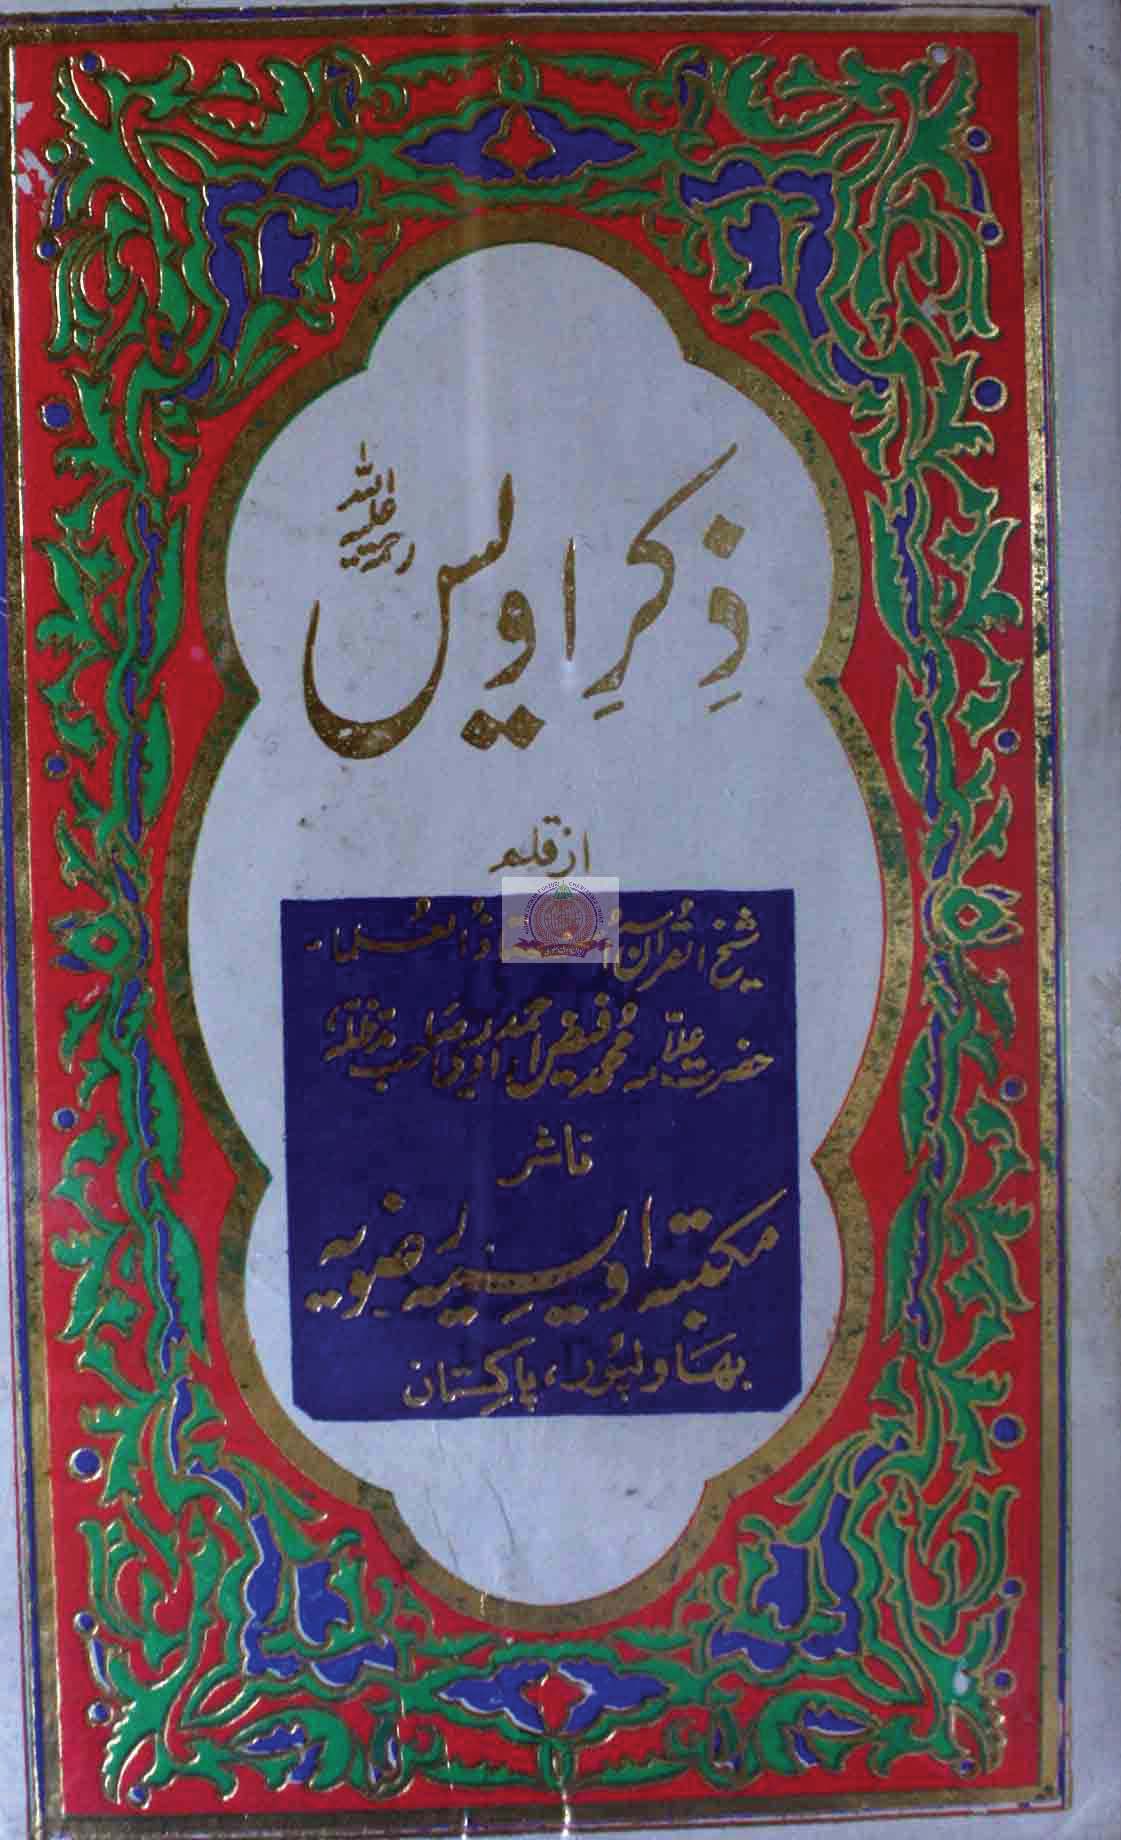 ذِکرِ اویس رحمۃ اللہ علیہ
از قلم
شیخ القرآن العلماء
حضرت علامہ محمد فیض احمد اویسی صاحب مدظلہ
ناشر
مکتبہ اویسیہ رضویہ
بھاولپور، پاکستان